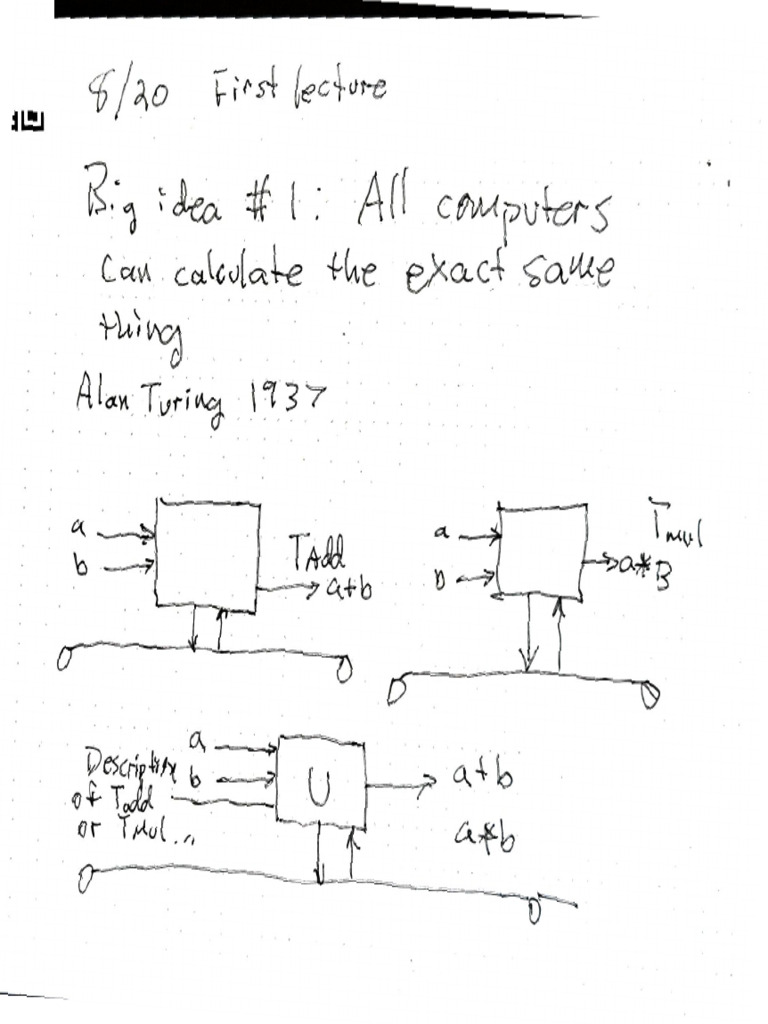 8/20 First lecture
Big idea #1: All computers
can calculate the exact same
thing
Alan Turing 1937
a
b
TAdd
a+b
a
b
Tmul
a*B
Description
of Tadd
or TMul...
a
b
U
a+b
a*b